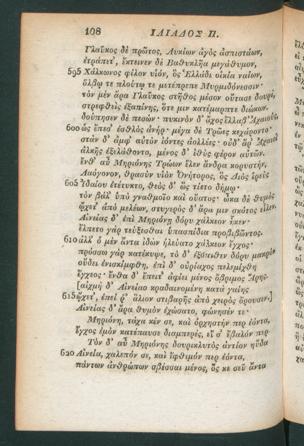 108 ΙΛΙΑΔΟΣ Π.
Γλαῦκος δὲ πρῶτος, Λυκίων ἀγὸς ἀσπιστάων,
ἐτράπετ', ἔκτεινεν δὲ Βαθυκλῆα μεγάθυμον,
595 Χάλκωνος φίλον υἱὸν, ὃς Ἑλλάδι οἰκία ναίων,
ὄλβῳ τε πλούτῳ τε μετέπρεπε Μυρμιδόνεσσιν·
τὸν μὲν ἄρα Γλαῦκος στῆθος μέσον οὔτασε δουρὶ,
στρεφθεὶς ἐξαπίνης, ὅτε μιν κατέμαρπτε διώκων.
δούπησεν δὲ πεσών· πυκινὸν δ' ἄχος ἔλλαβ' Ἀχαιοὺς,
600 ὡς ἔπεσ' ἐσθλὸς ἀνήρ· μέγα δὲ Τρῶες κεχάροντο·
στὰν δ' ἀμφ' αὐτὸν ἰόντες ἀολλέες· οὐδ' ἄρ' Ἀχαιοὶ
ἀλκῆς ἐξελάθοντο, μένος δ' ἰθὺς φέρον αὐτῶν.
ἔνθ' αὖ Μηριόνης Τρώων ἕλεν ἄνδρα κορυστὴν,
Λαόγονον, θρασὺν υἱὸν Ὀνήτορος, ὃς Διὸς ἱρεὺς
605 Ἰδαίου ἐτέτυκτο, θεὸς δ' ὣς τίετο δήμῳ·
τὸν βάλ' ὑπὸ γναθμοῖο καὶ οὔατος· ὦκα δὲ θυμὸς
ᾤχετ' ἀπὸ μελέων, στυγερὸς δ' ἄρα μιν σκότος εἷλεν.
Αἰνείας δ' ἐπὶ Μηριόνῃ δόρυ χάλκεον ἧκεν·
ἔλπετο γὰρ τεύξεσθαι ὑπασπίδια προβιβῶντος.
610 ἀλλ' ὁ μὲν ἄντα ἰδὼν ἠλεύατο χάλκεον ἔγχος·
πρόσσω γὰρ κατέκυψε, τὸ δ' ἐξόπιθεν δόρυ μακρὸν
οὔδει ἐνισκίμφθη, ἐπὶ δ' οὐρίαχος πελεμίχθη
ἔγχεος· ἔνθα δ' ἔπειτ' ἀφίει μένος ὄβριμος Ἄρης·
[αἰχμὴ δ' Αἰνείαο κραδαινομένη κατὰ γαίης
615 ᾤχετ', ἐπεί ῥ' ἅλιον στιβαρῆς ἀπὸ χειρὸς ὄρουσεν·]
Αἰνείας δ' ἄρα θυμὸν ἐχώσατο, φώνησέν τε·
Μηριόνη, τάχα κέν σε, καὶ ὀρχηστήν περ ἐόντα,
ἔγχος ἐμὸν κατέπαυσε διαμπερὲς, εἴ σ' ἔβαλόν περ.
Τὸν δ' αὖ Μηριόνης δουρικλυτὸς ἀντίον ηὔδα·
620 Αἰνεία, χαλεπόν σε, καὶ ἴφθιμόν περ ἐόντα,
πάντων ἀνθρώπων σβέσσαι μένος, ὅς κέ σευ ἄντα